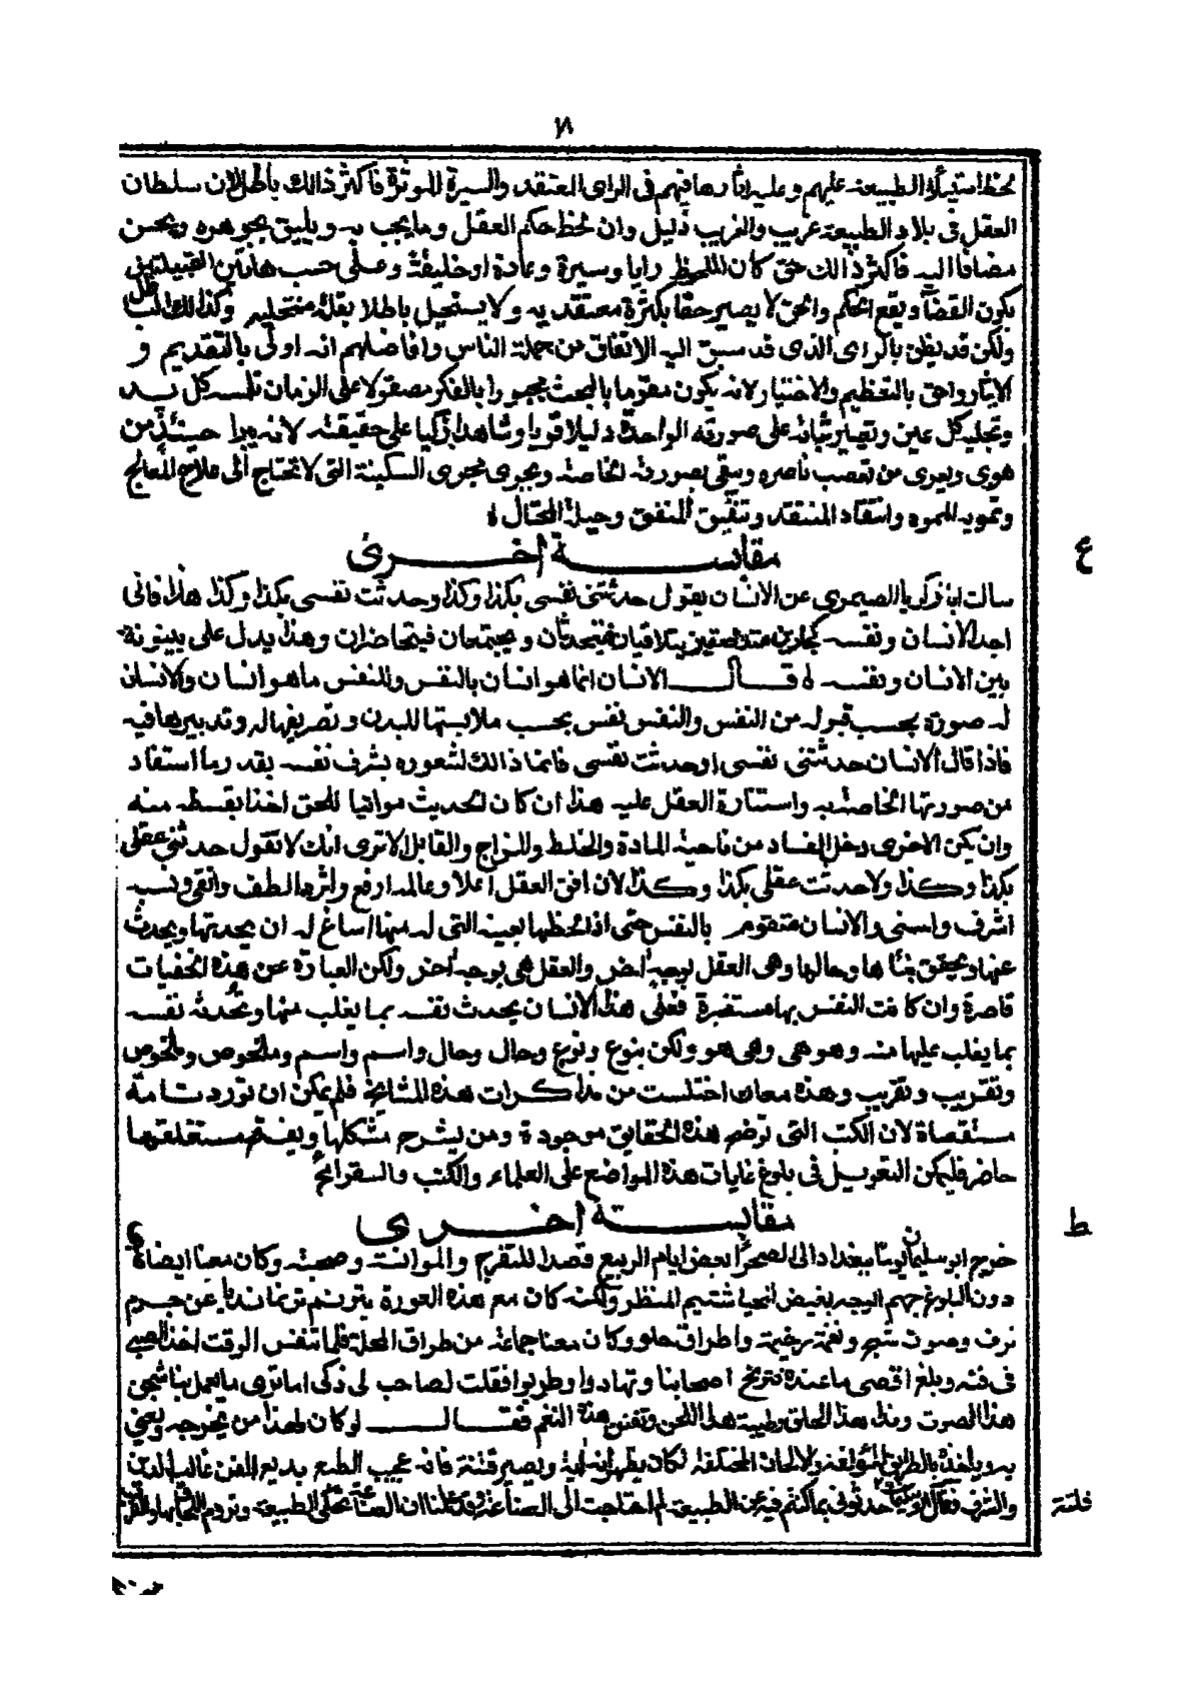 ١٨
لحظ استيلاء الطبيعة عليهم وعليه اثارها فيهم فى الراى المعتقد والسيرة الموثرة فاكثر ذالك باطل لان سلطان
العقل فى بلاد الطبيعة غريب والغريب ذليل وان لحظ حكم العقل وما يجب به ويليق بجوهره ويحسن
مضافا اليه فاكثر ذالك حق كان الملحوظ رايا وسيرة وعادة او خليقة وعلى حسب هاتين القبيلتين
يكون القضآ ويقع الحكم والحق لا يصير حقا بكثرة معتقديه ولا يستحيل باطلا بقلة منتحليه وكذالك الباطل
ولكن قد يظن بالراى الذى قد سبق اليه الاتفاق من جملة الناس وافاضلهم انه اولى بالتقديم و
الايثار واحق بالتعظيم والاختيار لانه يكون مقوما بالبحث مجبورا بالفكر مصقولا على الزمان تلمسه كل يد
وتجليه كل عين ويصير ثباته على صورته الواحدة دليلا قويا وشاهدا زكيا على حقيقته لانه يبرا حينئذ من
هوى ويعرى من تعصب ناصره ويبقى بصورته الخاصة ويجرى مجرى السكينة التى لا تحتاج الى علاج المعالج
وتمويه المموه وانتقاد المنتقد وتنفيق المنفق وحيلة المحتال
ع
مقابسة أخرى
سالت ابا زكريا الصيمرى عن الانسان يقول حدثتنى نفسى بكذا وكذا وحدثت نفسى بكذا وكذا هذا فانى
اجد الانسان ونفسه كجارين متلاصقين يتلاقيان فيتحدثان ويجتمعان فيتحاضران وهذا يدل على بينونة
بين الانسان ونفسه قال الانسان انما هو انسان بالنفس والنفس ما هو انسان والانسان
له صورة بحسب قبوله من النفس والنفس نفس بحسب ملابستها للبدن وتصريفها له وتدبيرها فيه
فاذا قال الانسان حدثتنى نفسى او حدثت نفسى فانما ذالك لشعوره بشرف نفسه بقدر ما استفاد
من صورتها الخاصة به واستنارة العقل عليه هذا ان كان الحديث مواتيا للحق اخذا بقسطه منه
وان يكن الاخرى دخل الفساد من ناحية المادة والخلط والمزاج والقابل الا ترى انك لا تقول حدثنى عقلى
بكذا وكذا ولا حدثت عقلى بكذا وكذا لان افق العقل اعلا وعالمه ارفع واثره الطف وانقى ونسبه
اشرف واسنى والانسان متقوم بالنفس حتى اذا لحظها بعينه التى له منها ساغ له ان يحدثها ويحدث
عنها ويحقق بناها وحالها وهى العقل بوجه اخر والعقل هى بوجه اخر ولكن العبارة عن هذه الخفيات
قاصرة وان كانت النفس بها مستخبرة فعلى هذا الانسان يحدث نفسه بما يغلب منها وتحدثه نفسه
بما يغلب عليها منه وهو هى وهى هو ولكن بنوع ونوع وحال وحال واسم واسم وملحوص وملحوص
وتقريب وتقريب وهذه معان اختلست من مذاكرات هذه المشايخ فلم يمكن ان تورد تامة
مستقصاة لان الكتب التى توضح هذه الحقايق موجودة ومن يشرح مشكلها ويفتح مستغلقها
حاضر فليكن التعويل فى بلوغ غايات هذه المواضع على العلماء والكتب والسقرايح
ط
مقابسة أخرى
خرج ابو سليمان يوما ببغداد الى الصحرا بعض ايام الربيع قصدا للتفرج والموانسة وصحبته وكان معنا ايضا
دون البلوغ جهم الوجه بغيض المحيا شتيم المنظر ولكنه كان مع هذه العورة يترنم ترنما نديا عن جرم
ترف وصوت شج ونغمة رخيمة واطراق حلو وكان معنا جماعة من طراق المحلة فلما تنفس الوقت اخذ الصبى
فى فنه وبلغ اقصى ما عنده فترنح اصحابنا وتهادوا وطربوا فقلت لصاحب لى ذكى اما ترى ما يعمل بنا شجى
هذا الصوت وندا هذا الحلق وطيبة هذا اللحن وتفنن هذه النغم فقال لو كان لهذا من يخرجه ويعنى
به وياخذه بالطرايق المؤلفة والالحان المختلفة لكان يظهر انه اية ويصير فتنة فانه عجيب الطبع بديع الفن غالب الدن
والترف فقال ابو سليمان حدثونى بما كنتم فيه عن الطبيعة لم احتاجت الى الصناعة وقد علمنا ان الصناعة تحكى الطبيعة وتروم
فلتة